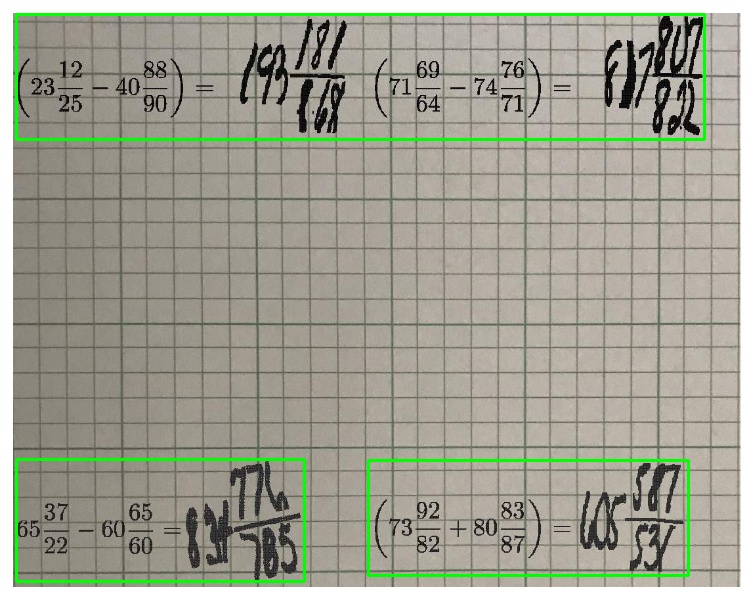 (23 12/25 − 40 88/90) = 193 181/868 (71 69/64 − 74 76/71) = 817 807/822
65 37/22 − 60 65/60 = 834 776/785 (73 92/82 + 80 83/87) = 605 587/531